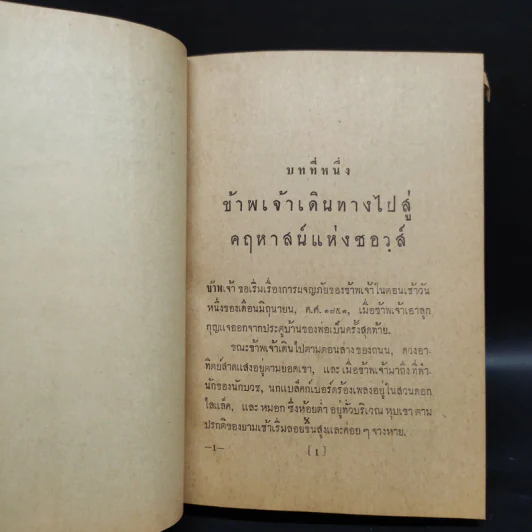 บทที่หนึ่ง
ข้าพเจ้าเดินทางไปสู่
คฤหาสน์แห่งชอวส์
ข้าพเจ้า ขอเริ่มเรื่องการผจญภัยของข้าพเจ้าในตอนเช้าวัน
หนึ่งของเดือนมิถุนายน, ค.ศ. ๑๗๕๑, เมื่อข้าพเจ้าเอาลูก
กุญแจออกจากประตูบ้านของพ่อเป็นครั้งสุดท้าย.
ขณะข้าพเจ้าเดินไปตามตอนล่างของถนน, ดวงอา-
ทิตย์สาดแสงอยู่ตามยอดเขา, และ เมื่อข้าพเจ้ามาถึง ที่พำ-
นักของนักบวช, นกแบล็คก์เบอร์ดร้องเพลงอยู่ในสวนดอก
ไลแล็ค, และ หมอก ซึ่งห้อยต่ำ อยู่ทั่วบริเวณ หุบเขา ตาม
ปรกติของยามเช้าเริ่มลอยขึ้นสูงและค่อย ๆ จางหาย.
—1— [ 1 ]